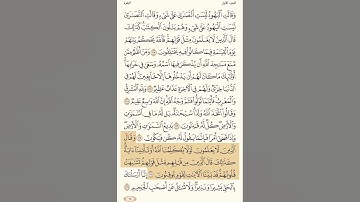 الجزء الأول
البقرة
وَقَالَتِ ٱلْيَهُودُ لَيْسَتِ ٱلنَّصَٰرَىٰ عَلَىٰ شَىْءٍ وَقَالَتِ ٱلنَّصَٰرَىٰ
لَيْسَتِ ٱلْيَهُودُ عَلَىٰ شَىْءٍ وَهُمْ يَتْلُونَ ٱلْكِتَٰبَ كَذَٰلِكَ
قَالَ ٱلَّذِينَ لَا يَعْلَمُونَ مِثْلَ قَوْلِهِمْ فَٱللَّهُ يَحْكُمُ بَيْنَهُمْ
يَوْمَ ٱلْقِيَٰمَةِ فِيمَا كَانُوا۟ فِيهِ يَخْتَلِفُونَ وَمَنْ أَظْلَمُ مِمَّن
مَّنَعَ مَسَٰجِدَ ٱللَّهِ أَن يُذْكَرَ فِيهَا ٱسْمُهُۥ وَسَعَىٰ فِى خَرَابِهَآ
أُو۟لَٰٓئِكَ مَا كَانَ لَهُمْ أَن يَدْخُلُوهَآ إِلَّا خَآئِفِينَ لَهُمْ فِى
ٱلدُّنْيَا خِزْىٌ وَلَهُمْ فِى ٱلْءَاخِرَةِ عَذَابٌ عَظِيمٌ وَلِلَّهِ ٱلْمَشْرِقُ
وَٱلْمَغْرِبُ فَأَيْنَمَا تُوَلُّوا۟ فَثَمَّ وَجْهُ ٱللَّهِ إِنَّ ٱللَّهَ وَٰسِعٌ عَلِيمٌ
وَقَالُوا۟ ٱتَّخَذَ ٱللَّهُ وَلَدًا سُبْحَٰنَهُۥ بَل لَّهُۥ مَا فِى ٱلسَّمَٰوَٰتِ
وَٱلْأَرْضِ كُلٌّ لَّهُۥ قَٰنِتُونَ بَدِيعُ ٱلسَّمَٰوَٰتِ وَٱلْأَرْضِ
وَإِذَا قَضَىٰٓ أَمْرًا فَإِنَّمَا يَقُولُ لَهُۥ كُن فَيَكُونُ وَقَالَ
ٱلَّذِينَ لَا يَعْلَمُونَ لَوْلَا يُكَلِّمُنَا ٱللَّهُ أَوْ تَأْتِينَآ ءَايَةٌ
كَذَٰلِكَ قَالَ ٱلَّذِينَ مِن قَبْلِهِم مِّثْلَ قَوْلِهِمْ تَشَٰبَهَتْ
قُلُوبُهُمْ قَدْ بَيَّنَّا ٱلْءَايَٰتِ لِقَوْمٍ يُوقِنُونَ إِنَّآ أَرْسَلْنَٰكَ
بِٱلْحَقِّ بَشِيرًا وَنَذِيرًا وَلَا تُسْـَٔلُ عَنْ أَصْحَٰبِ ٱلْجَحِيمِ